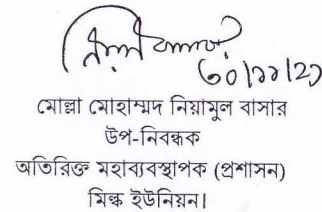 ৩০/১১/২১
মোল্লা মোহাম্মদ নিয়ামুল বাসার
উপ-নিবন্ধক
অতিরিক্ত মহাব্যবস্থাপক (প্রশাসন)
মিল্ক ইউনিয়ন।